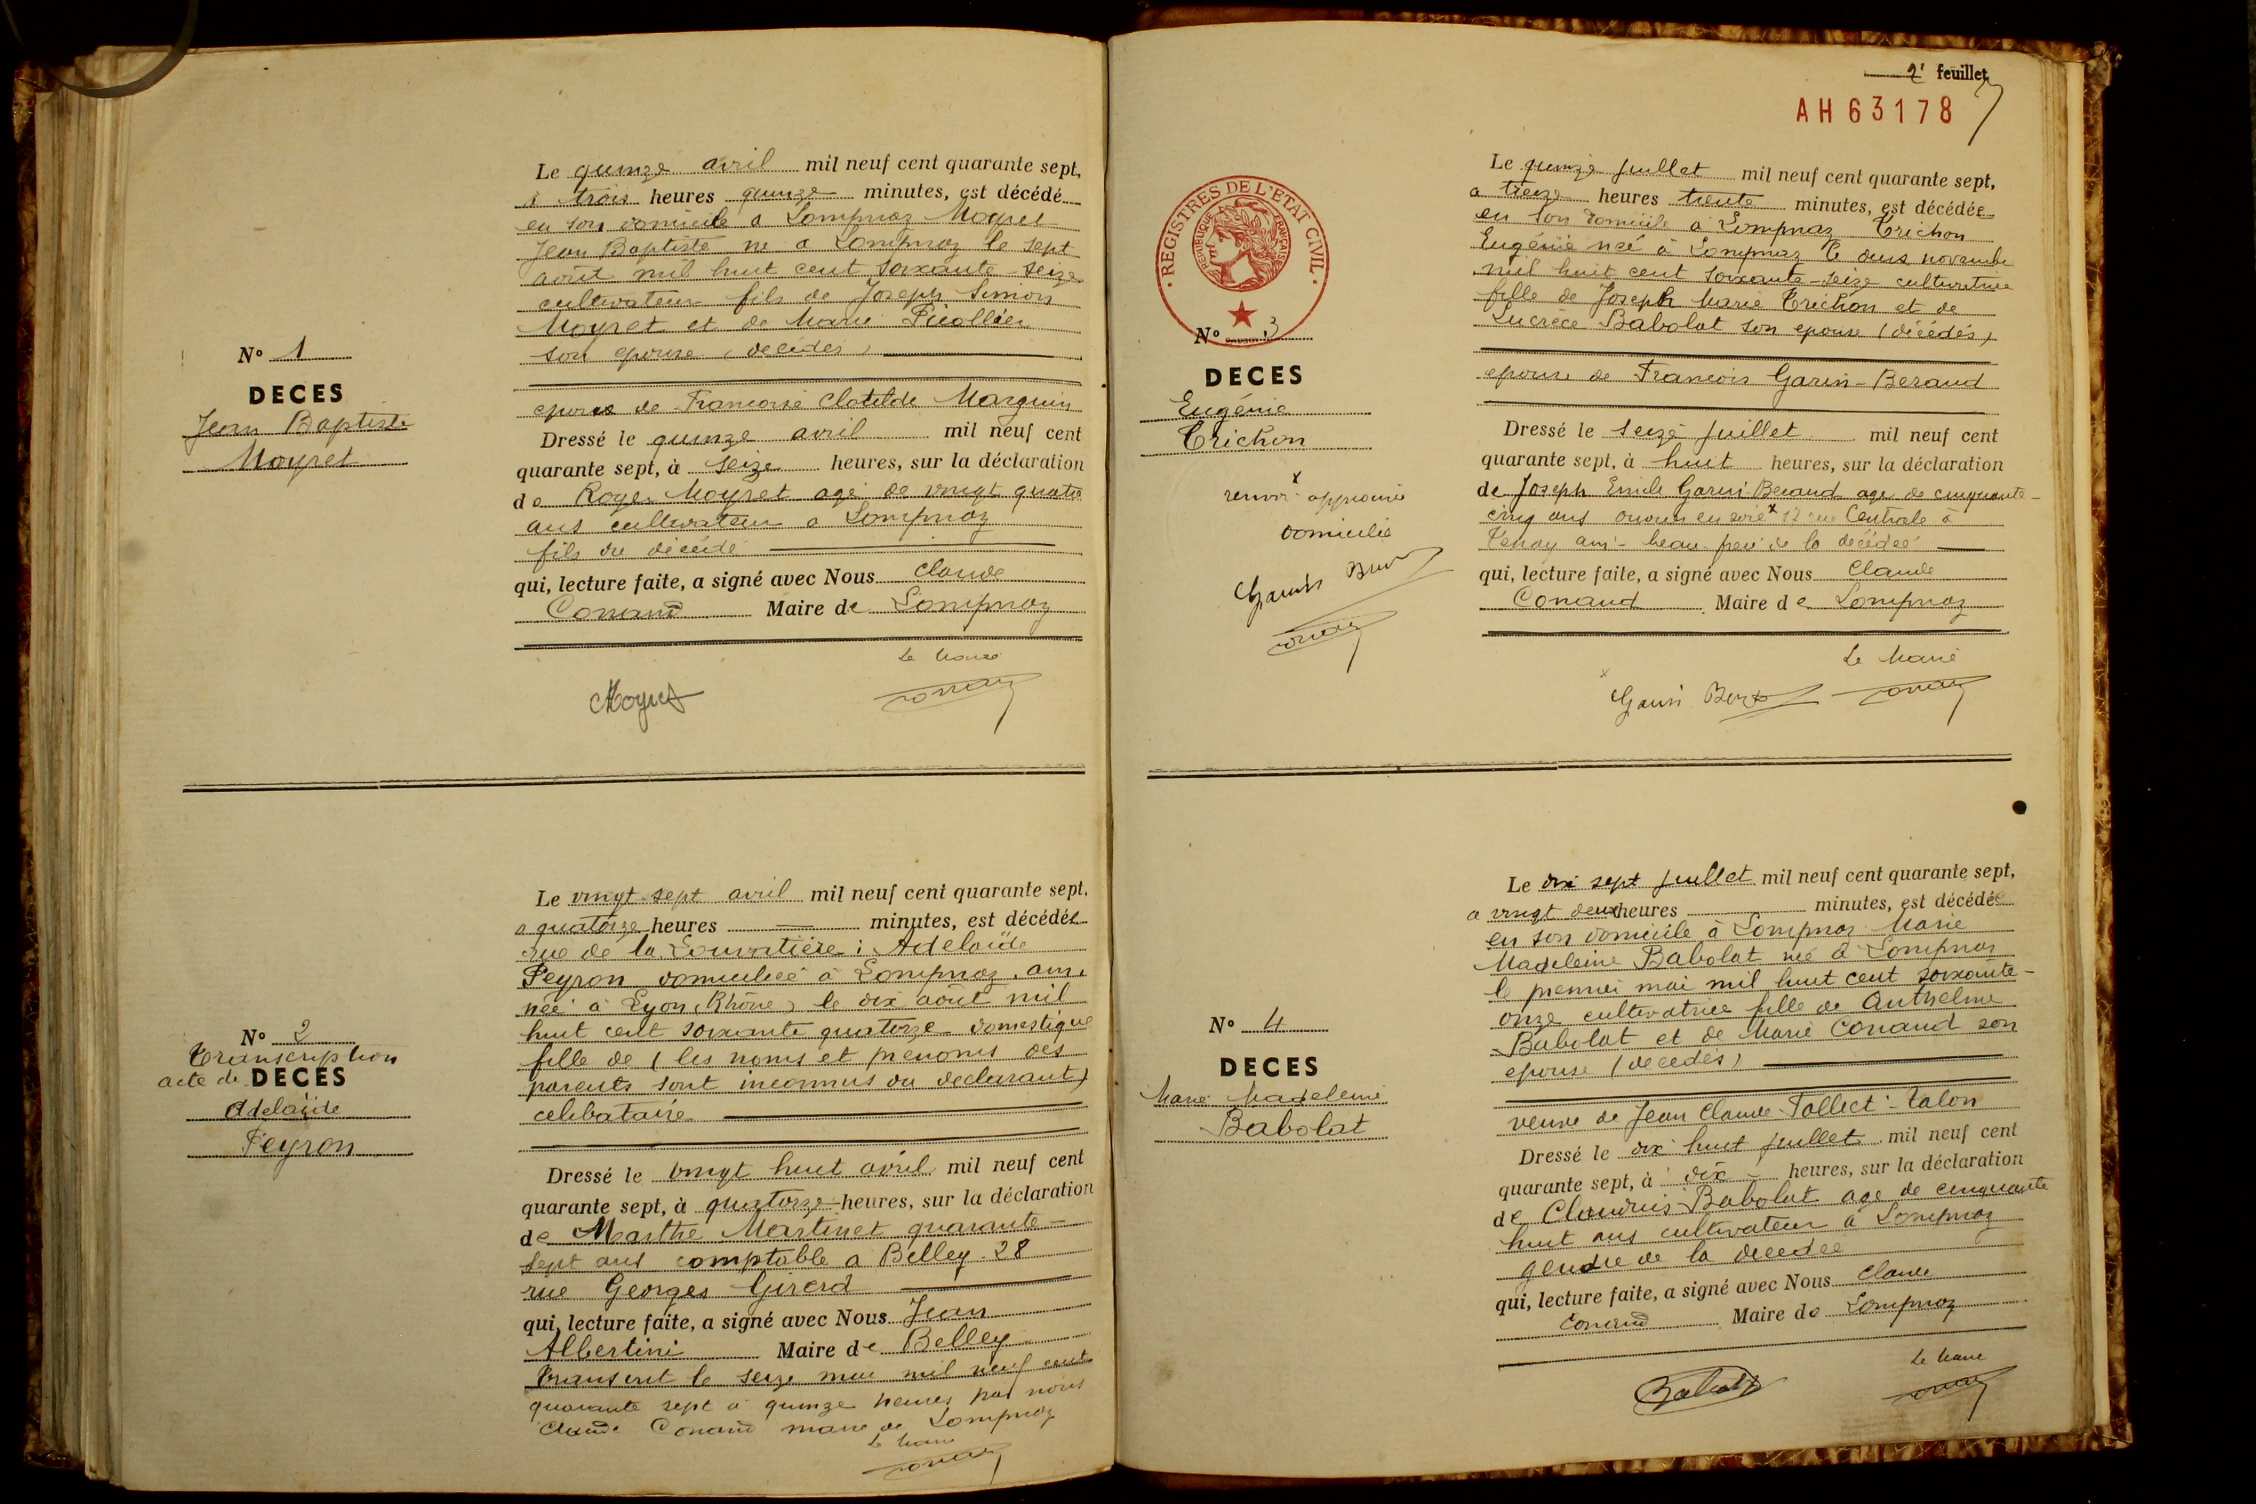 N° 1
DECES
Jean Baptiste
Moyret
Le quinze avril mil neuf cent quarante sept,
à trois heures quinze minutes, est décédé
en son domicile a Lompnaz Moyret
Jean Baptiste ne a Lompnaz le sept
août mil huit cent soixante-seize
cultivateur fils de Joseph Simon
Moyret et de Marie
son epouse (décédés)
epoux de Francoise Clotilde Marguin
Dressé le quinze avril mil neuf cent
quarante sept, à seize heures, sur la déclaration
de Roger Moyret agé de vingt quatre
ans cultivateur a Lompnaz
fils du décédé
qui, lecture faite, a signé avec Nous Claude
Conand Maire de Lompnaz
Le Maire
Moyret
Conand
N° 2
Transcription
acte de DECES
Adelaïde
Peyron
Le vingt sept avril mil neuf cent quarante sept,
a quatorze heures — minutes, est décédée
rue de la Louvatière : Adelaïde
Peyron domiciliée à Lompnaz Ain.
née à Lyon (Rhône) le dix août mil
huit cent soixante quatorze domestique
fille de (les noms et prenoms des
parents sont inconnus du declarant)
celibataire
Dressé le vingt huit avril mil neuf cent
quarante sept, à quatorze heures, sur la déclaration
de Marthe Martinet quarante-
sept ans comptable a Belley 28
rue Georges Girerd
qui, lecture faite, a signé avec Nous Jean
Albertini Maire de Belley
Transcrit le seize mai mil neuf cent
quarante sept a quinze heures par nous
Claude Conand maire de Lompnaz
Le Maire
Conand
2e feuillet
AH 63178
REGISTRES DE L'ETAT CIVIL
REPUBLIQUE FRANÇAISE
N° 3
DECES
Eugénie
Trichon
x
renvoi approuvé
domicilié
Garin Beraud
Conand
Le quinze juillet mil neuf cent quarante sept,
a treize heures trente minutes, est décédée
en son domicile à Lompnaz Trichon
Eugénie née à Lompnaz le deux novembre
mil huit cent soixante-seize cultivatrice
fille de Joseph Marie Trichon et de
Lucrèce Babolat son epouse (décédés)
epouse de Francois Garin-Beraud
Dressé le seize juillet mil neuf cent
quarante sept, à huit heures, sur la déclaration
de Joseph Emile Garin-Beraud age de cinquante-
cinq ans ouvrier en soie x 12 rue Centrale à
Tenay ain - beau-frere de la décédée
qui, lecture faite, a signé avec Nous Claude
Conand Maire de Lompnaz
Le Maire
Garin Beraud
Conand
N° 4
DECES
Marie Madeleine
Babolat
Le dix sept juillet mil neuf cent quarante sept,
a vingt deux heures minutes, est décédée
en son domicile à Lompnaz Marie
Madeleine Babolat née à Lompnaz
le premier mai mil huit cent soixante-
onze cultivatrice fille de Anthelme
Babolat et de Marie Conand son
epouse (décédés)
veuve de Jean Claude Tollet-Talon
Dressé le dix huit juillet mil neuf cent
quarante sept, à dix heures, sur la déclaration
de Claudius Babolat age de cinquante
huit ans cultivateur à Lompnaz
gendre de la decedée
qui, lecture faite, a signé avec Nous Claude
Conand Maire de Lompnaz
Le Maire
Babolat
Conand